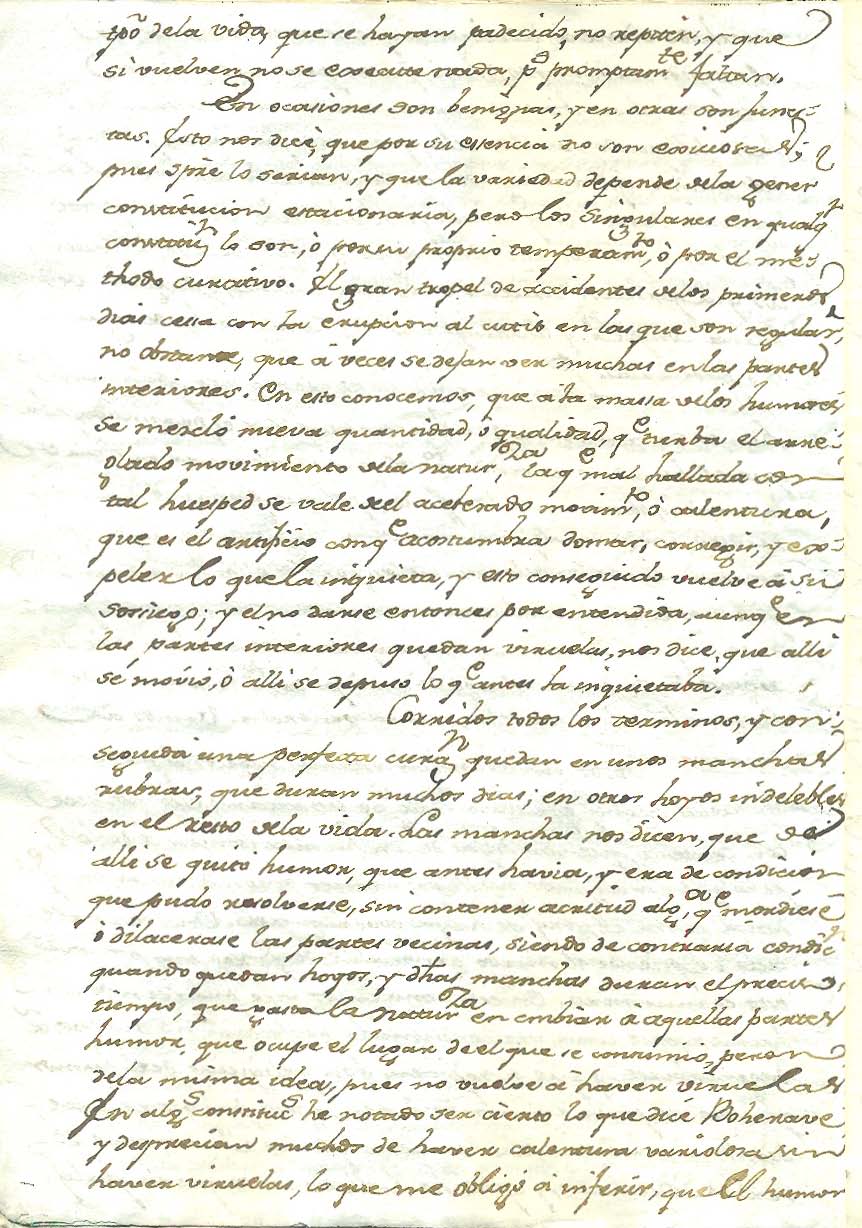 tpõ dela vida, que se hayan padecido, no repiten, y que
si vuelven no se exacerva nada, p.s promptam.te faltan.
En ocasiones son benignas, y en otras son funes-
tas. Esto nos dice, que por su essencia no son exiciosas;
pues spre lo serian, y que la variedad depende dela gener.l
constitucion estacionaria, pero los singulares en qualq.r
constituz.n lo son, ò por su proprio temperam.to, ò por el me-
thodo curativo. El gran tropel de accidentes delos primeros
dias cessa con la erupcion al cutis en las que son regular.s,
no obstante, que à veces se dejan ver muchas en las partes
interiores. En esto conocemos, que à la massa delos humores
se mezclò nueva quantidad, ò qualidad, q.e turba el arre-
glado movimiento dela natur.za, la q.e mal hallada con
tal huesped se vale del acelerado movim.to, ò calentura,
que es el artificio con q.e acostumbra domar, corregir, y ex-
peler lo que la inquieta, y esto conseguido vuelve à su
sosiego; y el no darse entonces por entendida, aunq.e en
las partes interiores quedan viruelas, nos dice, que alli
se moviò, ò alli se depuso lo q.e antes la inquietaba.
Corridos todos los terminos, y con-
seguida una perfecta curaz.n quedan en unos manchas
rubras, que duran muchos dias; en otros hoyos indelebles
en el resto dela vida. Las manchas nos dicen, que de
alli se quitò humor, que antes havia, y era de condicion
que pudo resolverse, sin contener acritud alg.a, q.e mordiese
ò dilacerase las partes vecinas, siendo de contraria condic.n
quando quedan hoyos, y dhas manchas duran el preciso
tiempo, que gasta la natur.za en embiar à aquellas partes
humor, que ocupe el lugar de el que se consumiò, pero no
dela misma idea, pues no vuelve à haver viruelas
En alg.s constituc.s he notado ser cierto lo que dice Boherave
y desprecian muchos de haver calentura variolosa sin
haver viruelas, lo que me obligò à inferir, que el humor